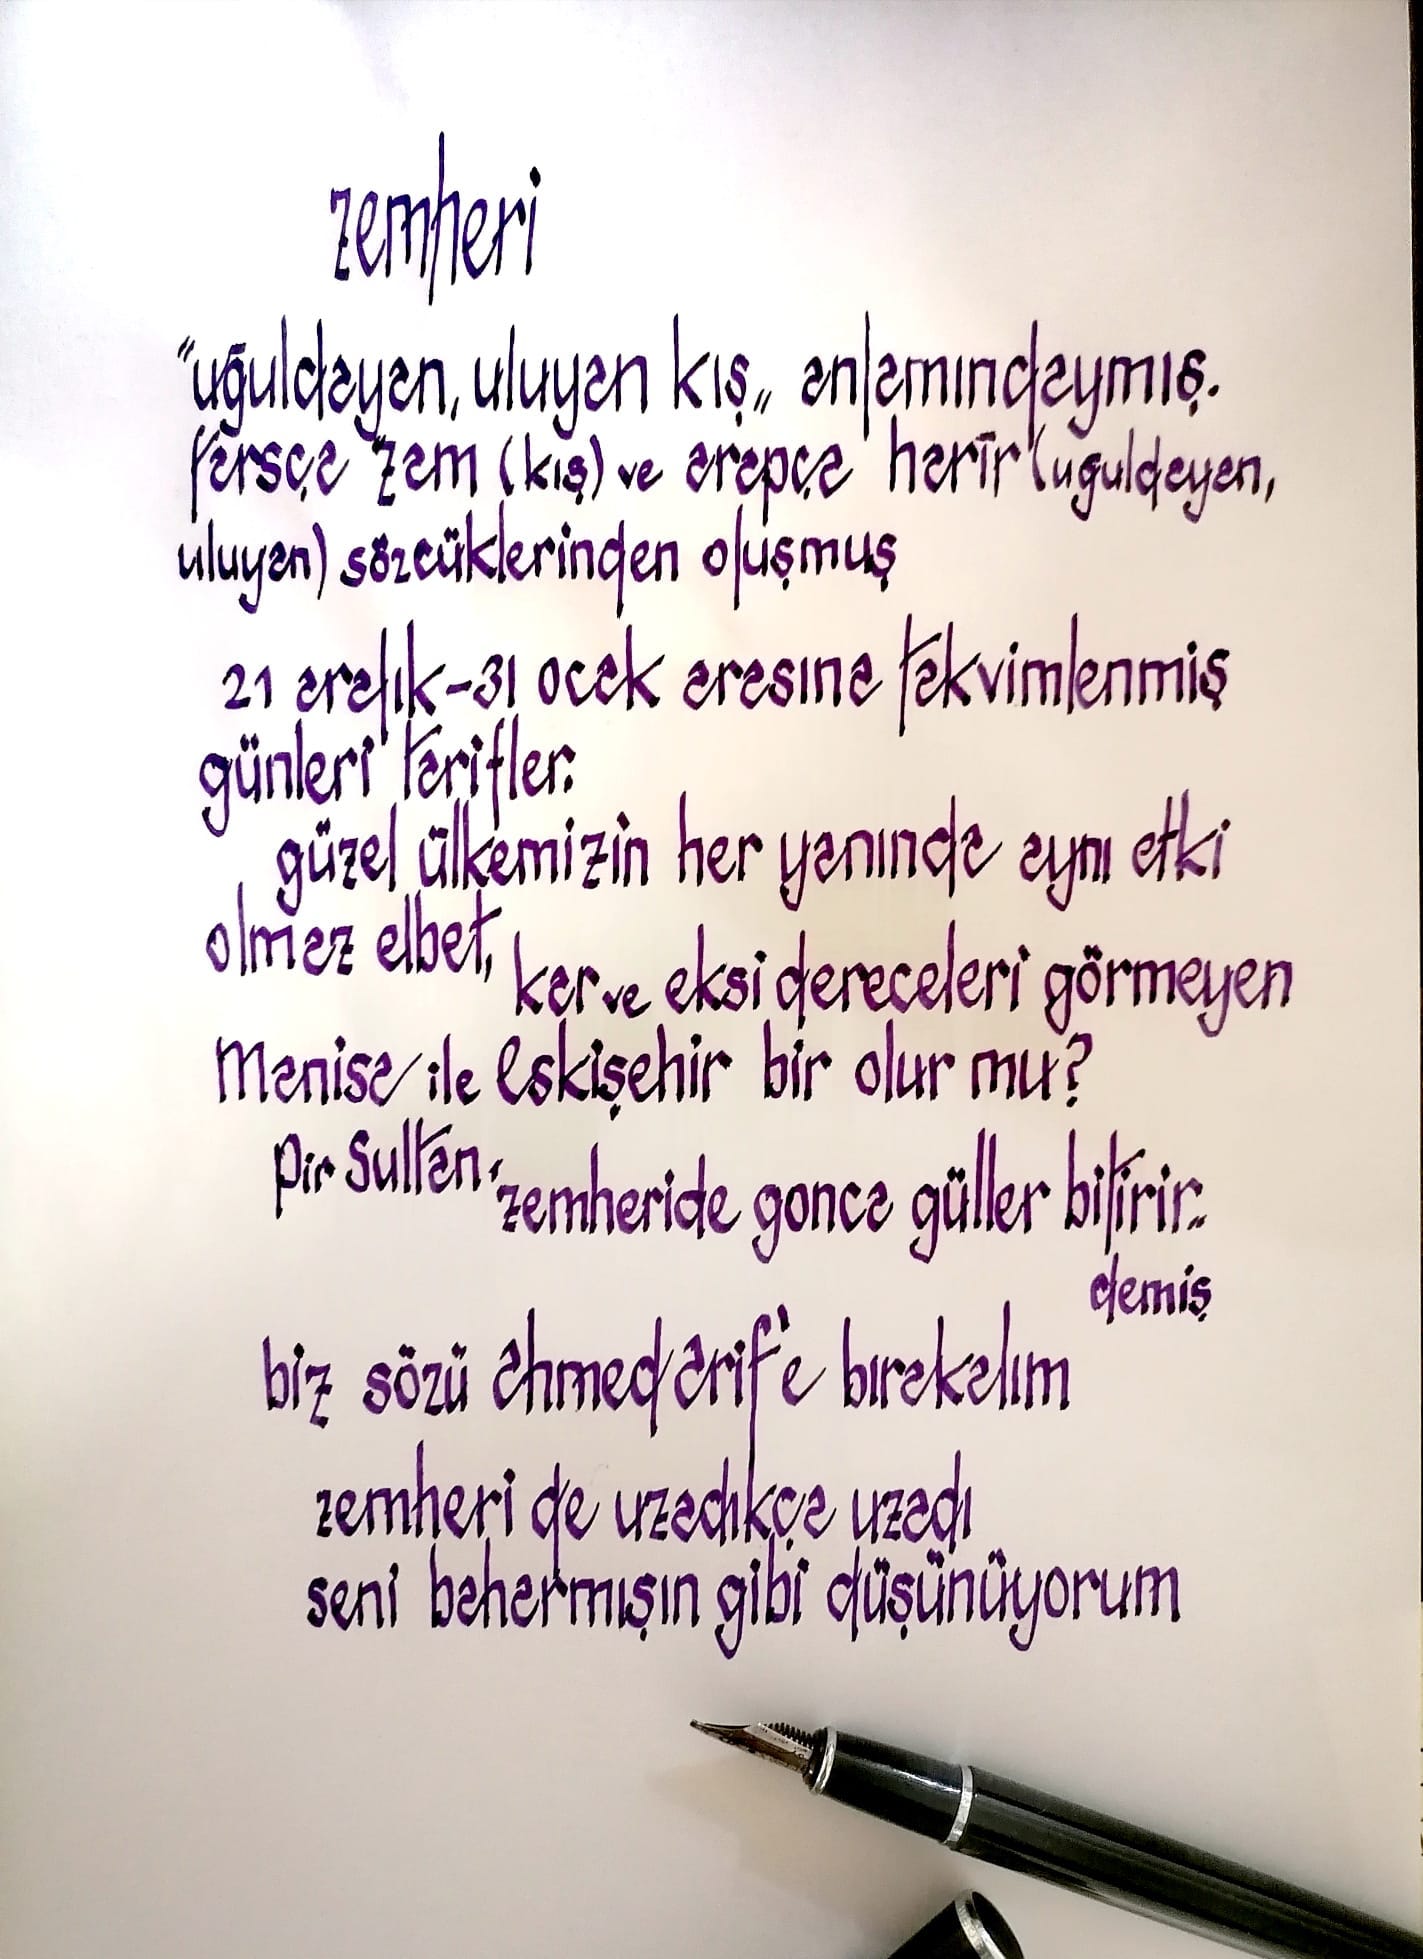 zemheri
"uğuldayan, uluyan kış„ anlamındaymış.
farsça zam (kış) ve arapça harīr (uğuldayan,
uluyan) sözcüklerinden oluşmuş
21 aralık-31 ocak arasına takvimlenmiş
günleri tarifler.
güzel ülkemizin her yanında aynı etki
olmaz elbet,
kar ve eksi dereceleri görmeyen
Manisa ile Eskişehir bir olur mu?
Pir Sultan "zemheride gonca güller bitirir.„
demiş
biz sözü ahmed arif'e bırakalım
zemheri de uzadıkça uzadı
seni baharmışın gibi düşünüyorum